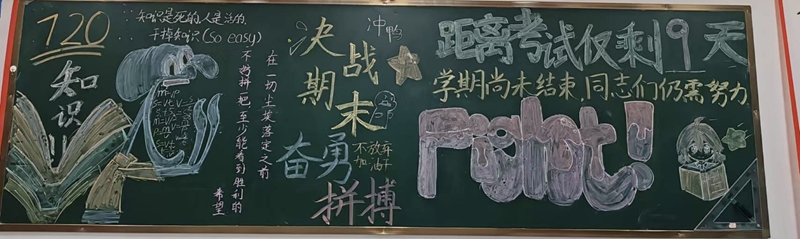 120
知识
知识是死的,人是活的,
干掉知识(so easy)
在一切尘埃落定之前
不妨拼一把,至少能看到胜利的
希望
冲鸭
决战
期末
奋勇
拼搏
不放弃
加油!
距离考试仅剩9天
学期尚未结束,同志们仍需努力
Fight!